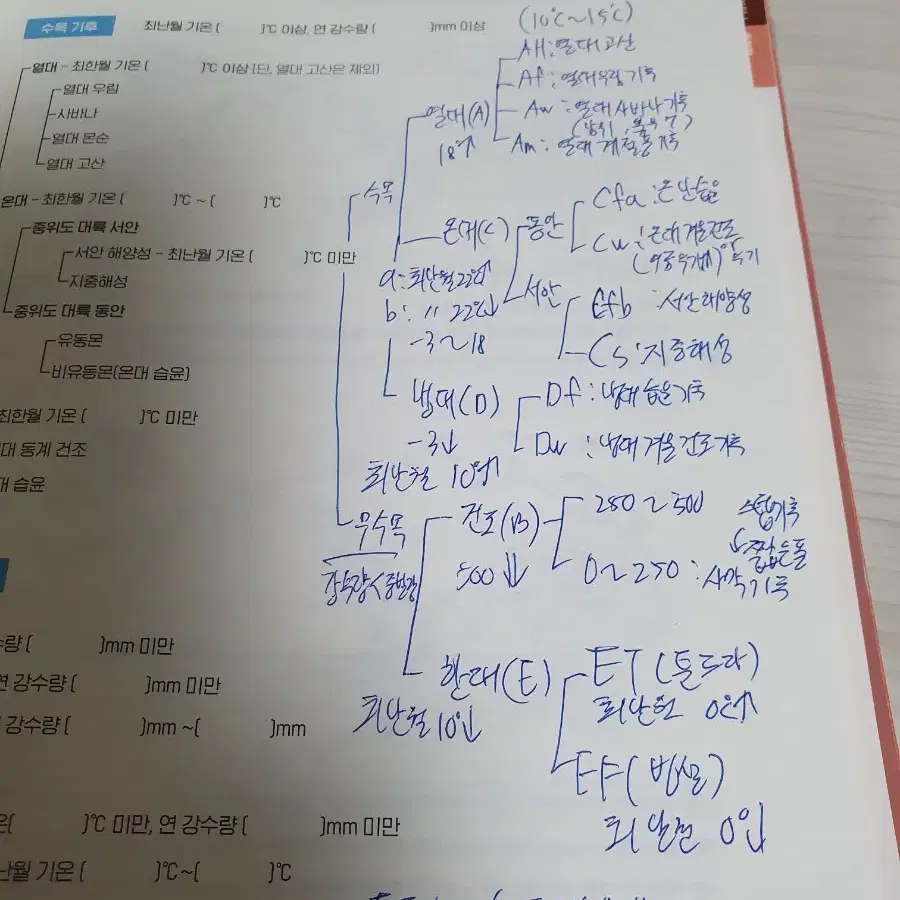 수목 기후 최난월 기온 ( )℃ 이상, 연 강수량 ( )mm 이상
열대 - 최한월 기온 ( )℃ 이상 (단, 열대 고산은 제외)
열대 우림
사바나
열대 몬순
열대 고산
온대 - 최한월 기온 ( )℃ ~ ( )℃
중위도 대륙 서안
서안 해양성 - 최난월 기온 ( )℃ 미만
지중해성
중위도 대륙 동안
유동몬
비유동몬(온대 습윤)
최한월 기온 ( )℃ 미만
대 동계 건조
대 습윤
수량 ( )mm 미만
연 강수량 ( )mm 미만
강수량 ( )mm ~( )mm
( )℃ 미만, 연 강수량 ( )mm 미만
난월 기온 ( )℃~( )℃
(10℃~15℃)
수목
열대(A)
18↑
AH:열대고산
Af:열대우림기후
Aw:열대사바나기후
Am:열대계절풍기후
온대(C)
a:최난월22↑
b: 〃 22↓
-3~18
동안
Cfa:온난습윤
Cw:온대겨울건조
기
서안
Cfb:서안해양성
Cs:지중해성
냉대(D)
-3↓
최난월 10↑
Df:냉대습윤기후
Dw:냉대겨울건조기후
무수목
강수량<증발량
건조(B)
500↓
250~500 스텝기후
짧은풀
0~250:사막기후
한대(E)
최난월10↓
ET(툰드라)
최난월 0↑
EF(빙설)
최난월 0↓